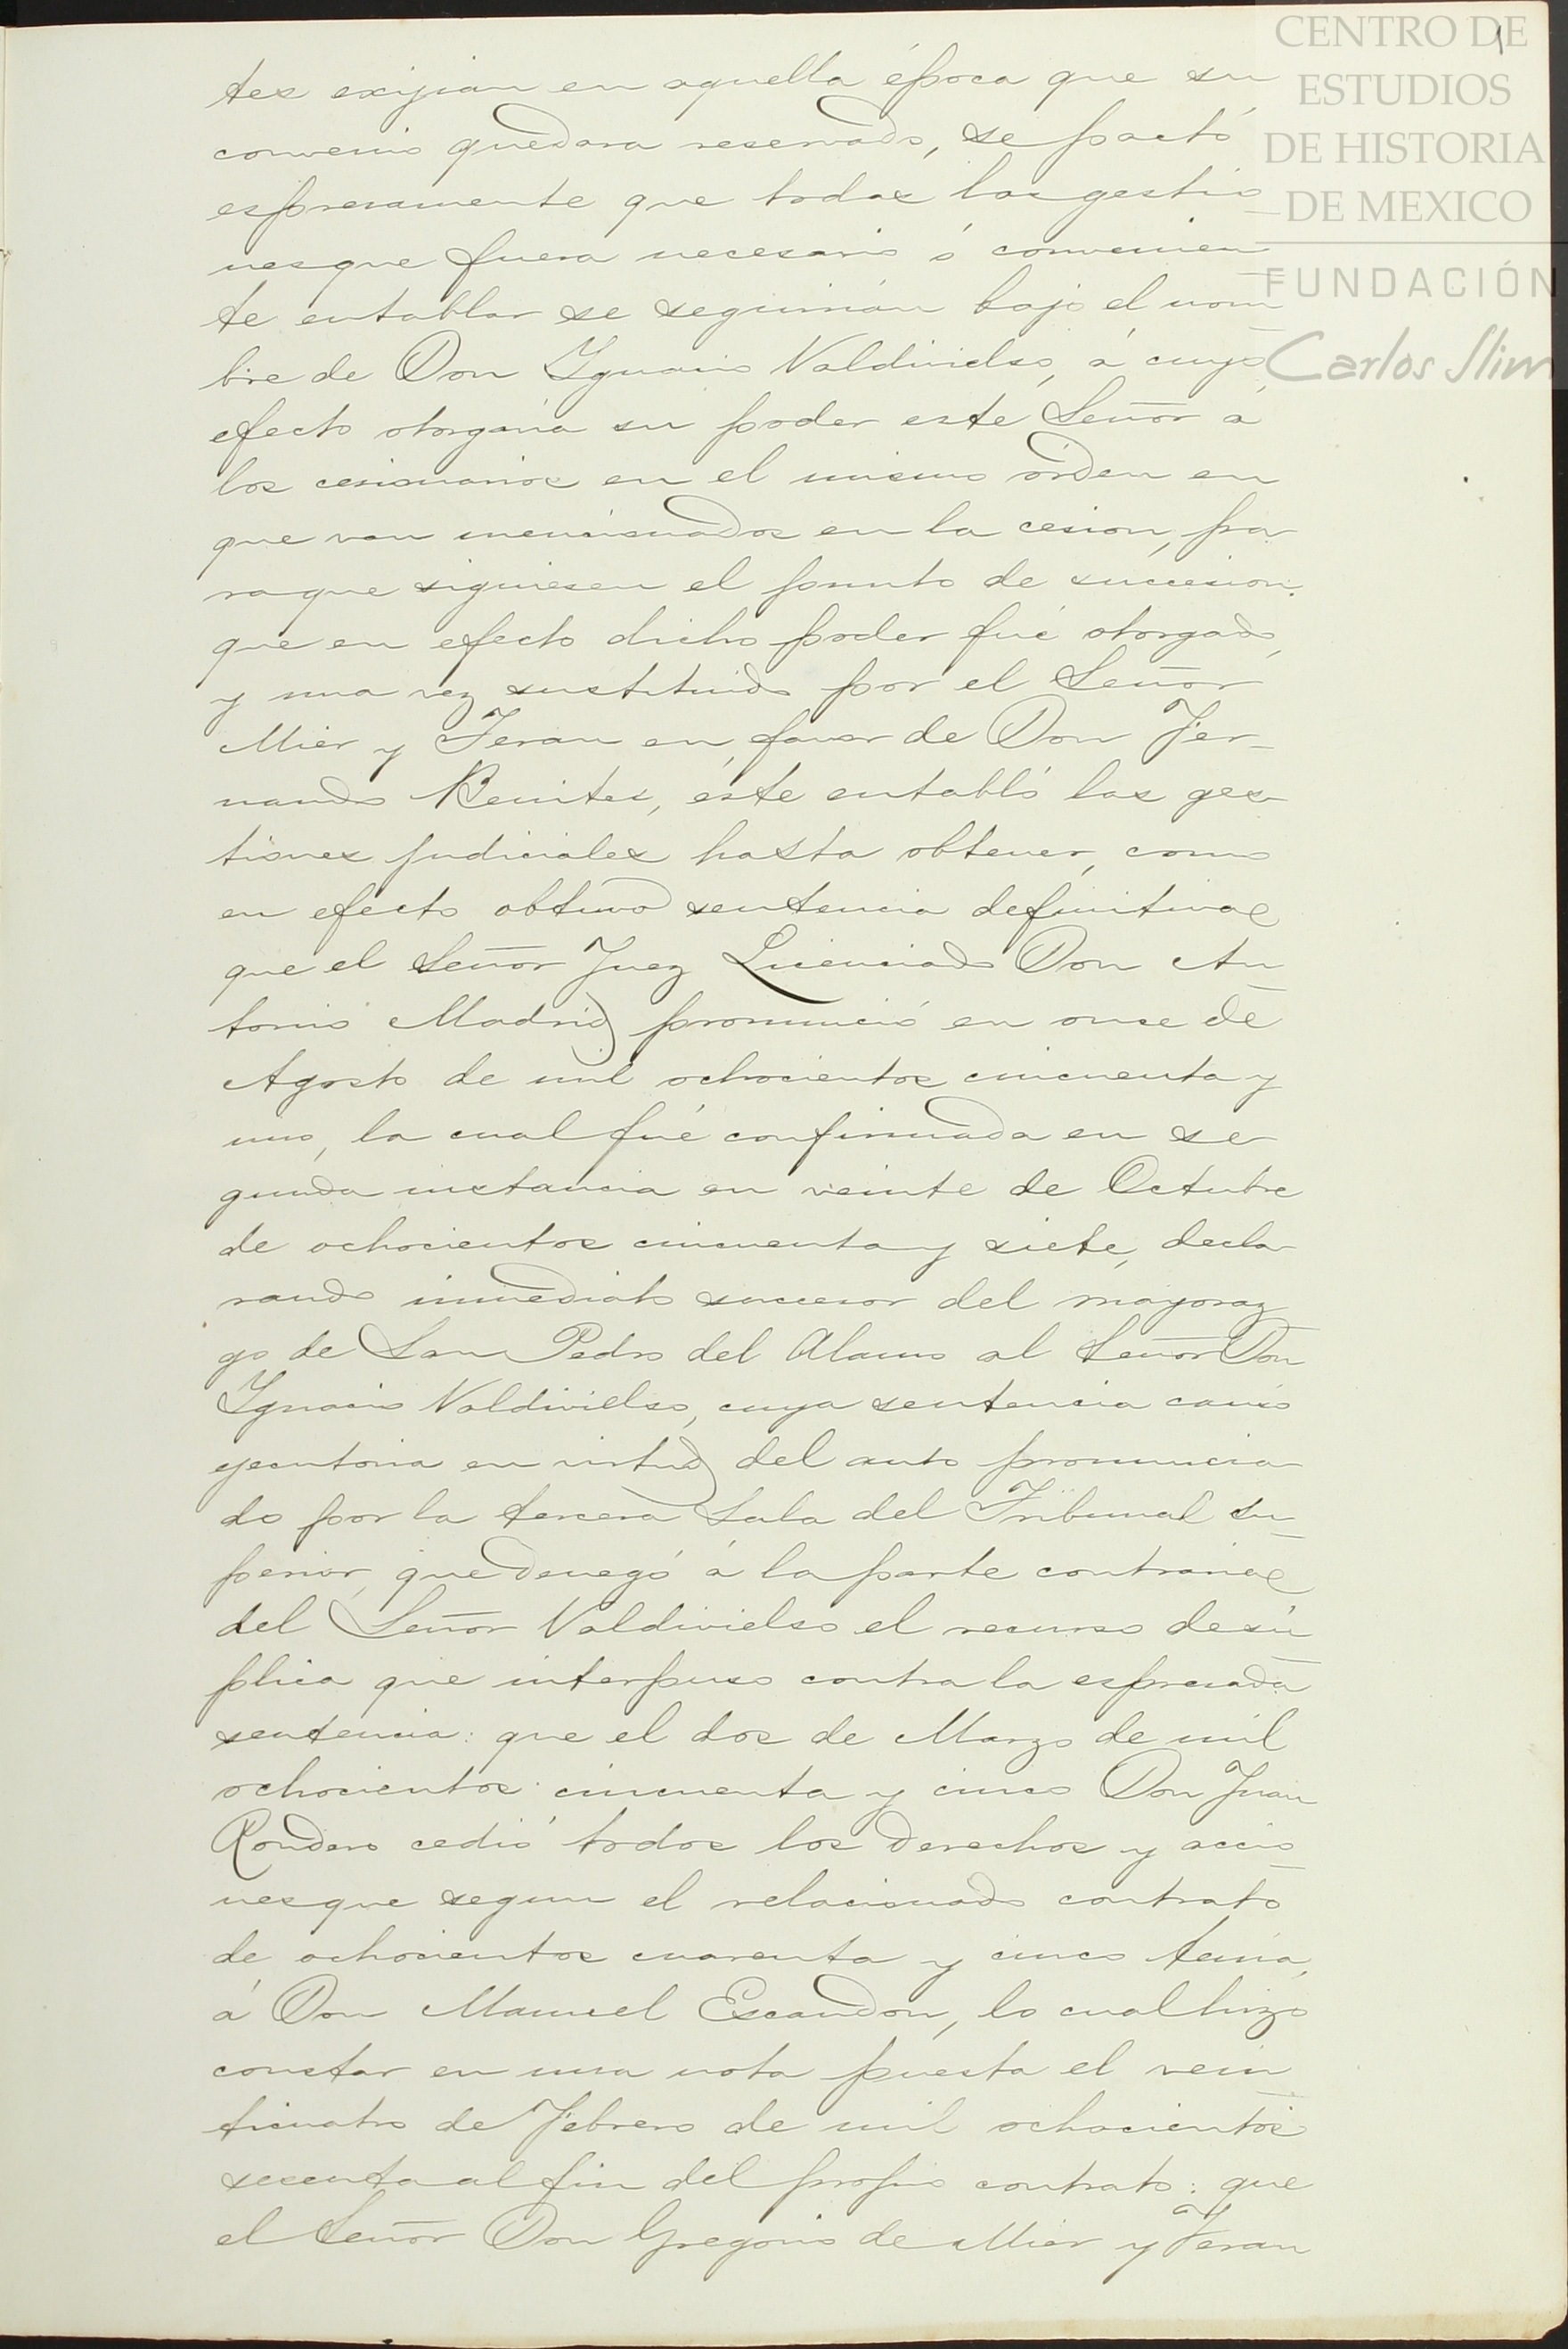 CENTRO DE
ESTUDIOS
DE HISTORIA
DE MEXICO
FUNDACIÓN
Carlos Slim
tes exijian en aquella época que su
convenio quedara reservado, se pactó
espresamente que todas las gestio
nes que fuera necesario ó convenien
te entablar se seguirian bajo el nom
bre de Don Ygnacio Valdivielso, á cuyo
efecto otorgaria su poder este Señor á
los cesionarios en el mismo órden en
que van mencionados en la cesion, pa
ra que siguiesen el punto de succesion.
que en efecto dicho poder fué otorgado,
y una vez sustituido por el Señor
Mier y Teran en favor de Don Fer-
nando Benites, éste entabló las ges
tiones judiciales hasta obtener, como
en efecto obtuvo sentencia definitiva
que el Señor Juez Licenciado Don An
tonio Madrid pronunció en once de
Agosto de mil ochocientos cincuenta y
uno, la cual fué confirmada en se
gunda instancia en veinte de Octubre
de ochocientos cincuenta y siete, decla
rando inmediato succesor del mayoraz
go de San Pedro del Alamo al Señor Don
Ygnacio Valdivielso, cuya sentencia causó
ejecutoria en virtud del auto pronuncia
do por la tercera Sala del Tribunal Su
perior, que denegó á la parte contraria
del Señor Valdivielso el recurso de sú
plica que interpuso contra la espresada
sentencia: que el dos de Marzo de mil
ochocientos cincuenta y cinco Don Juan
Rondero cedió todos los derechos y accio
nes que segun el relacionado contrato
de ochocientos cuarenta y cinco tenia,
á Don Manuel Escandon, lo cual hizo
constar en una nota puesta el vein
ticuatro de Febrero de mil ochocientos
sesenta al fin del propio contrato: que
el Señor Don Gregorio de Mier y Teran